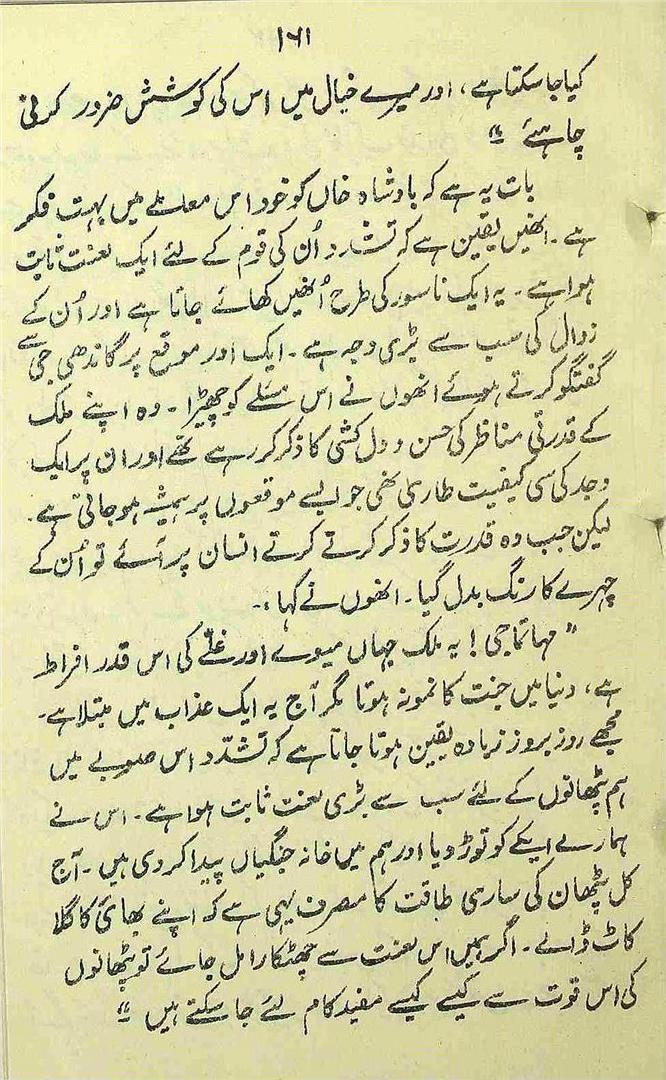 ۱۶۱
کیا جا سکتا ہے، اور میرے خیال میں اس کی کوشش ضرور کرنی
چاہئے ۔"
بات یہ ہے کہ بادشاہ خاں کو خود اس معاملے میں بہت فکر
ہے ۔ انھیں یقین ہے کہ تشدد اُن کی قوم کے لئے ایک لعنت ثابت
ہوا ہے ۔ یہ ایک ناسور کی طرح اُنھیں کھائے جاتا ہے اور اُن کے
زوال کی سب سے بڑی وجہ ہے ۔ ایک اور موقع پر گاندھی جی سے
گفتگو کرتے ہوئے انھوں نے اس مسئلے کو چھیڑا ۔ وہ اپنے ملک
کے قدرتی مناظر کی حسن و دل کشی کا ذکر کر رہے تھے اور ان پر ایک
وجد کی سی کیفیت طاری تھی جو ایسے موقعوں پر ہمیشہ ہو جاتی ہے ۔
لیکن جب وہ قدرت کا ذکر کرتے کرتے انسان پر آئے تو اُن کے
چہرے کا رنگ بدل گیا ۔ انھوں نے کہا :۔
"مہاتما جی! یہ ملک جہاں میوے اور غلّے کی اس قدر افراط
ہے، دنیا میں جنت کا نمونہ ہوتا مگر آج یہ ایک عذاب میں مبتلا ہے ۔
مجھے روز بروز زیادہ یقین ہوتا جاتا ہے کہ تشدّد اس صوبے میں
ہم پٹھانوں کے لئے سب سے بڑی لعنت ثابت ہوا ہے ۔ اس نے
ہمارے ایکے کو توڑ دیا اور ہم میں خانہ جنگیاں پیدا کر دی ہیں ۔ آج
کل پٹھان کی ساری طاقت کا مصرف یہی ہے کہ اپنے بھائی کا گلا
کاٹ ڈالے ۔ اگر ہمیں اس لعنت سے چھٹکارا مل جائے تو پٹھانوں
کی اس قوت سے کیسے کیسے مفید کام لئے جا سکتے ہیں ۔"